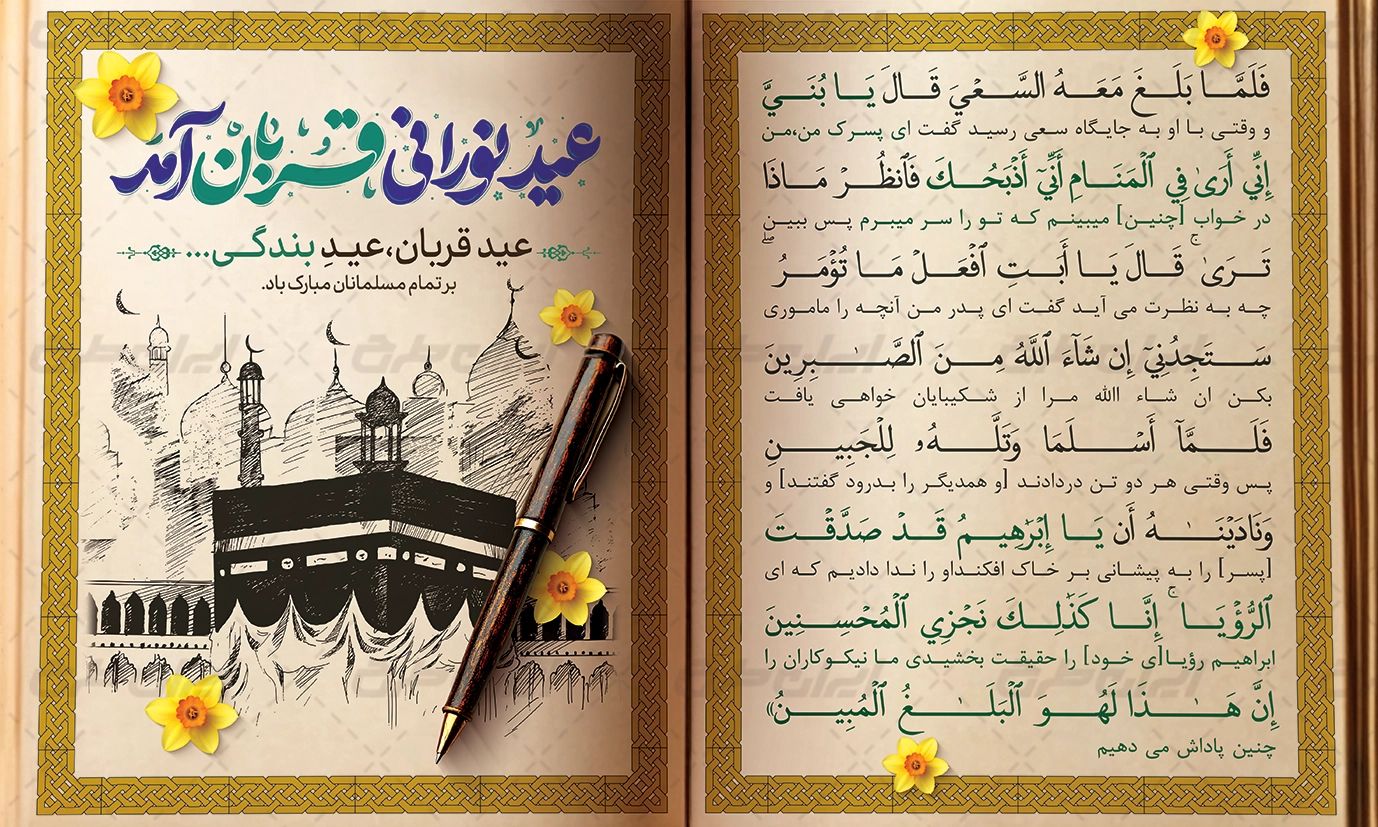 فَلَمَّا بَلَغَ مَعَهُ السَّعْيَ قَالَ يَا بُنَيَّ
و وقتی با او به جایگاه سعی رسید گفت ای پسرک من،من
إِنِّي أَرَىٰ فِي ٱلْمَنَامِ أَنِّيٓ أَذْبَحُكَ فَٱنظُرْ مَاذَا
در خواب [چنین] میبینم که تو را سر میبرم پس ببین
تَرَىٰ ۚ قَالَ يَا أَبَتِ ٱفْعَلْ مَا تُؤْمَرُ ۖ
چه به نظرت می آید گفت ای پدر من آنچه را ماموری
سَتَجِدُنِيٓ إِن شَآءَ ٱللَّهُ مِنَ ٱلصَّـٰبِرِينَ
بکن ان شاء االله مرا از شکیبایان خواهی یافت
فَلَمَّآ أَسْلَمَا وَتَلَّهُۥ لِلْجَبِينِ
پس وقتی هر دو تن دردادند [و همدیگر را بدرود گفتند] و
وَنَادَيْنَـٰهُ أَن يَا إِبْرَٰهِيمُ قَدْ صَدَّقْتَ
[پسر] را به پیشانی بر خاک افکنداو را ندا دادیم که ای
ٱلرُّؤْيَا ۚ إِنَّا كَذَٰلِكَ نَجْزِي ٱلْمُحْسِنِينَ
ابراهیم رؤیا[ی خود] را حقیقت بخشیدی ما نیکوکاران را
إِنَّ هَـٰذَا لَهُوَ ٱلْبَلَـٰغُ ٱلْمُبِينُ﴾
چنین پاداش می دهیم
عید نورانی قربان آمد
عید قربان،عیدِ بندگی...
بر تمام مسلمانان مبارک باد.